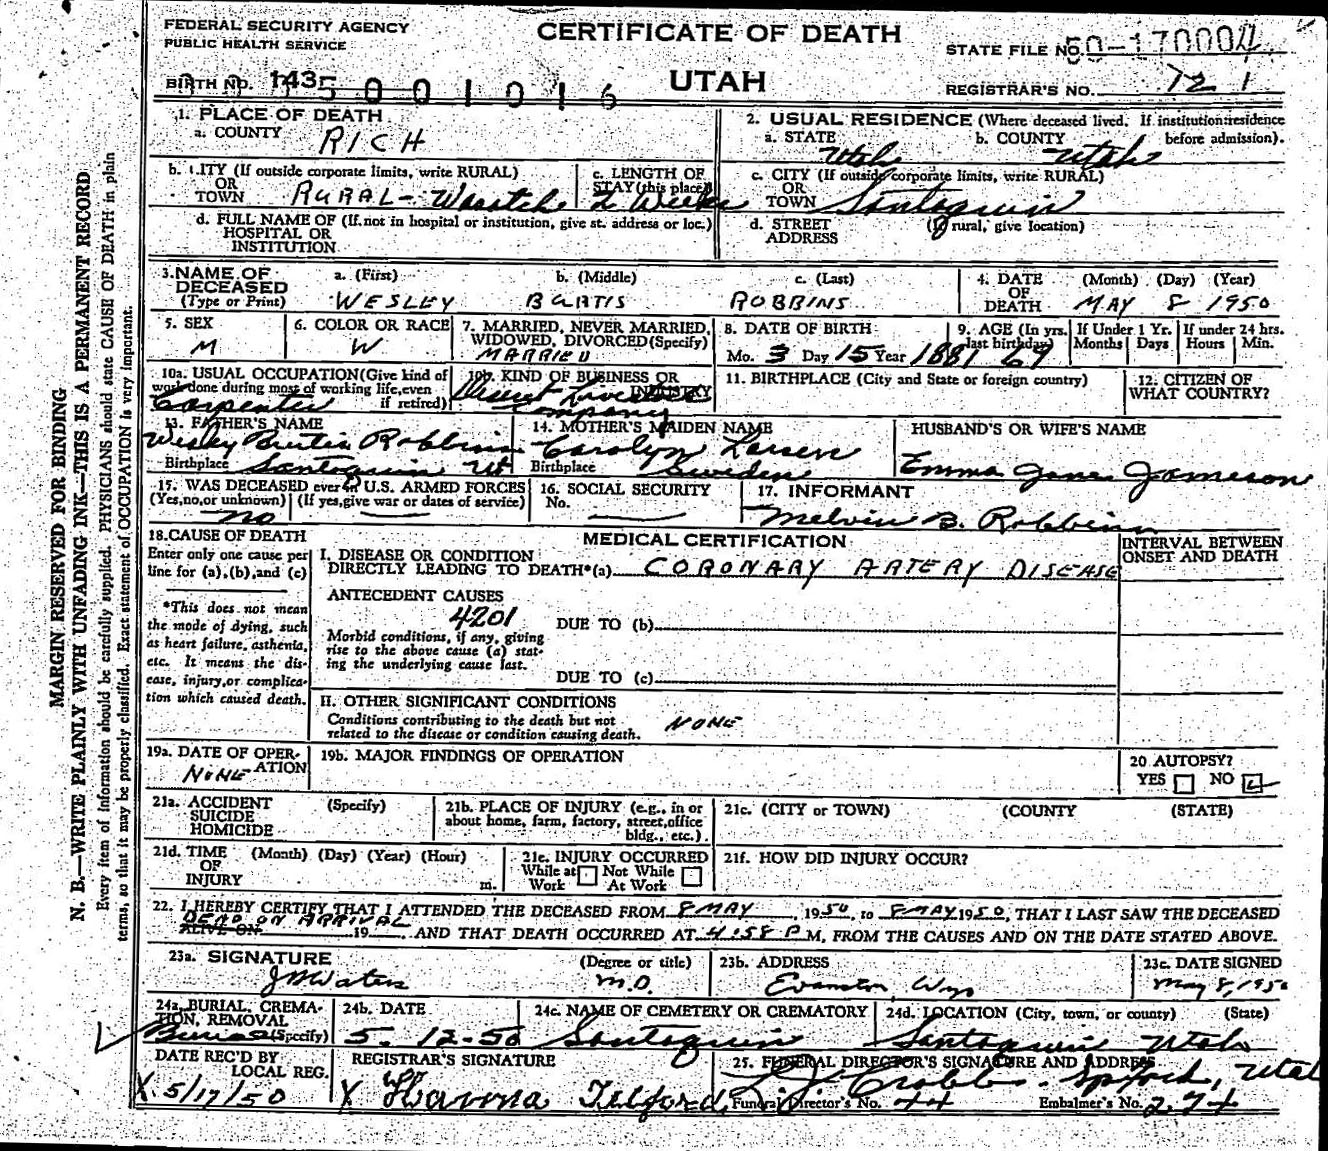 FEDERAL SECURITY AGENCY
PUBLIC HEALTH SERVICE
CERTIFICATE OF DEATH
UTAH
STATE FILE NO. 50-170004
BIRTH NO. 143
REGISTRAR'S NO.
1. PLACE OF DEATH
a. COUNTY RICH
2. USUAL RESIDENCE (Where deceased lived. If institution: residence before admission).
a. STATE Utah b. COUNTY Utah
b. CITY (If outside corporate limits, write RURAL) OR TOWN RURAL-
c. LENGTH OF STAY (this place) 2 Weeks
c. CITY (If outside corporate limits, write RURAL) OR TOWN Santaquin
d. FULL NAME OF (If not in hospital or institution, give st. address or loc.) HOSPITAL OR INSTITUTION
d. STREET ADDRESS (If rural, give location)
3. NAME OF DECEASED (Type or Print) a. (First) WESLEY b. (Middle) BURTIS c. (Last) ROBBINS
4. DATE OF DEATH (Month) (Day) (Year) MAY 8 1950
5. SEX M
6. COLOR OR RACE W
7. MARRIED, NEVER MARRIED, WIDOWED, DIVORCED (Specify) MARRIED
8. DATE OF BIRTH Mo. 3 Day 15 Year 1881
9. AGE (In yrs. last birthday) 69
If Under 1 Yr. Months Days
If under 24 hrs. Hours Min.
10a. USUAL OCCUPATION (Give kind of work done during most of working life, even if retired) Carpenter
10b. KIND OF BUSINESS OR INDUSTRY Deseret Live Company
11. BIRTHPLACE (City and State or foreign country)
12. CITIZEN OF WHAT COUNTRY?
13. FATHER'S NAME Wesley Burtis Robbins
Birthplace Santaquin Ut
14. MOTHER'S MAIDEN NAME Carolyn Larsen
Birthplace Sweden
HUSBAND'S OR WIFE'S NAME
Emma Jane Jameson
15. WAS DECEASED ever in U.S. ARMED FORCES
(Yes, no, or unknown) (If yes, give war or dates of service)
no
16. SOCIAL SECURITY No.
17. INFORMANT
Melvin B. Robbins
18. CAUSE OF DEATH
Enter only one cause per line for (a), (b), and (c)
*This does not mean the mode of dying, such as heart failure, asthenia, etc. It means the disease, injury, or complication which caused death.
MEDICAL CERTIFICATION
INTERVAL BETWEEN ONSET AND DEATH
I. DISEASE OR CONDITION DIRECTLY LEADING TO DEATH*(a) CORONARY ARTERY DISEASE
ANTECEDENT CAUSES
4201
Morbid conditions, if any, giving rise to the above cause (a) stating the underlying cause last.
DUE TO (b)
DUE TO (c)
II. OTHER SIGNIFICANT CONDITIONS
Conditions contributing to the death but not related to the disease or condition causing death. NONE
19a. DATE OF OPERATION NONE
19b. MAJOR FINDINGS OF OPERATION
20 AUTOPSY?
YES NO
21a. ACCIDENT SUICIDE HOMICIDE (Specify)
21b. PLACE OF INJURY (e.g., in or about home, farm, factory, street, office bldg., etc.)
21c. (CITY or TOWN) (COUNTY) (STATE)
21d. TIME OF INJURY (Month) (Day) (Year) (Hour) m.
21e. INJURY OCCURRED
While at Work Not While At Work
21f. HOW DID INJURY OCCUR?
22. I HEREBY CERTIFY THAT I ATTENDED THE DECEASED FROM 8 MAY, 1950, to 8 MAY 1950, THAT I LAST SAW THE DECEASED
DEAD ON ARRIVAL
ALIVE ON 19 , AND THAT DEATH OCCURRED AT 4:58 P M, FROM THE CAUSES AND ON THE DATE STATED ABOVE.
23a. SIGNATURE (Degree or title)
J M Waters M.D.
23b. ADDRESS
Evanston, Wyo
23c. DATE SIGNED
May 8, 1950
24a. BURIAL, CREMATION, REMOVAL (Specify) Burial
24b. DATE
5-12-50
24c. NAME OF CEMETERY OR CREMATORY
Santaquin
24d. LOCATION (City, town, or county) (State)
Santaquin Utah
DATE REC'D BY LOCAL REG.
X 5/17/50
REGISTRAR'S SIGNATURE
X Hanna Telford
25. FUNERAL DIRECTOR'S SIGNATURE AND ADDRESS
Utah
Funeral Director's No. 44 Embalmer's No. 274
MARGIN RESERVED FOR BINDING
N. B.—WRITE PLAINLY WITH UNFADING INK—THIS IS A PERMANENT RECORD
Every item of information should be carefully supplied. PHYSICIANS should state CAUSE OF DEATH in plain
terms, so that it may be properly classified. Exact statement of OCCUPATION is very important.